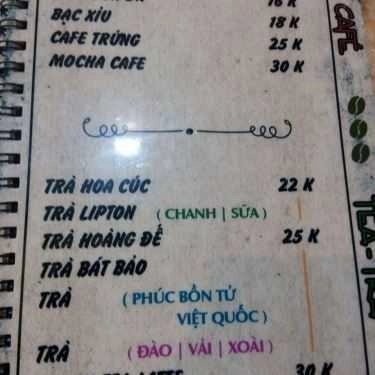 16 K
BẠC XỈU 18 K
CAFE TRỨNG 25 K
MOCHA CAFE 30 K
TRÀ HOA CÚC 22 K
TRÀ LIPTON ( CHANH | SỮA )
TRÀ HOÀNG ĐẾ 25 K
TRÀ BÁT BẢO
TRÀ ( PHÚC BỒN TỬ
VIỆT QUỐC )
TRÀ ( ĐÀO | VẢI | XOÀI )
30 K
CAFE
TEA-